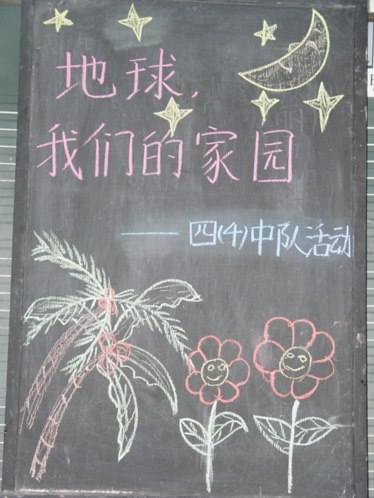 地球，
我们的家园
——四(4)中队活动